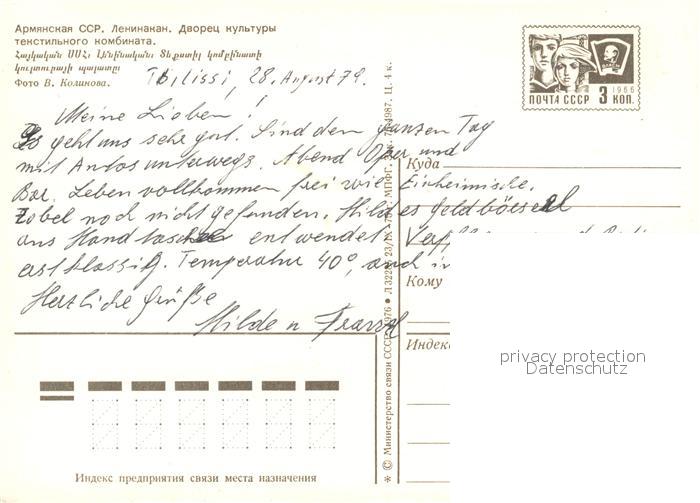 Армянская ССР. Ленинакан. Дворец культуры
текстильного комбината.
Հայկական ՍՍՀ. Լենինական. Տեքստիլ կոմբինատի
կուլտուրայի պալատը։
Фото В. Коликова.
Tbilissi, 28. August 79.
Meine Lieben!
Es geht uns sehr gut. Sind den ganzen Tag
mit Autos unterwegs. Abend Oper und
Bar. Leben vollkommen frei wie Einheimische.
Zobel noch nicht gefunden. Hildes Geldbörserl
aus Handtascherl entwendet.
erstklassig. Temperatur 40°, auch in
Herzliche Grüße
Hilde u Franzl
ПОЧТА СССР 3 КОП.
1966
Куда
Кому
Индекс
© Министерство связи СССР, 1976
МПФГ.
Ц. 4 к.
privacy protection
Datenschutz
Индекс предприятия связи места назначения